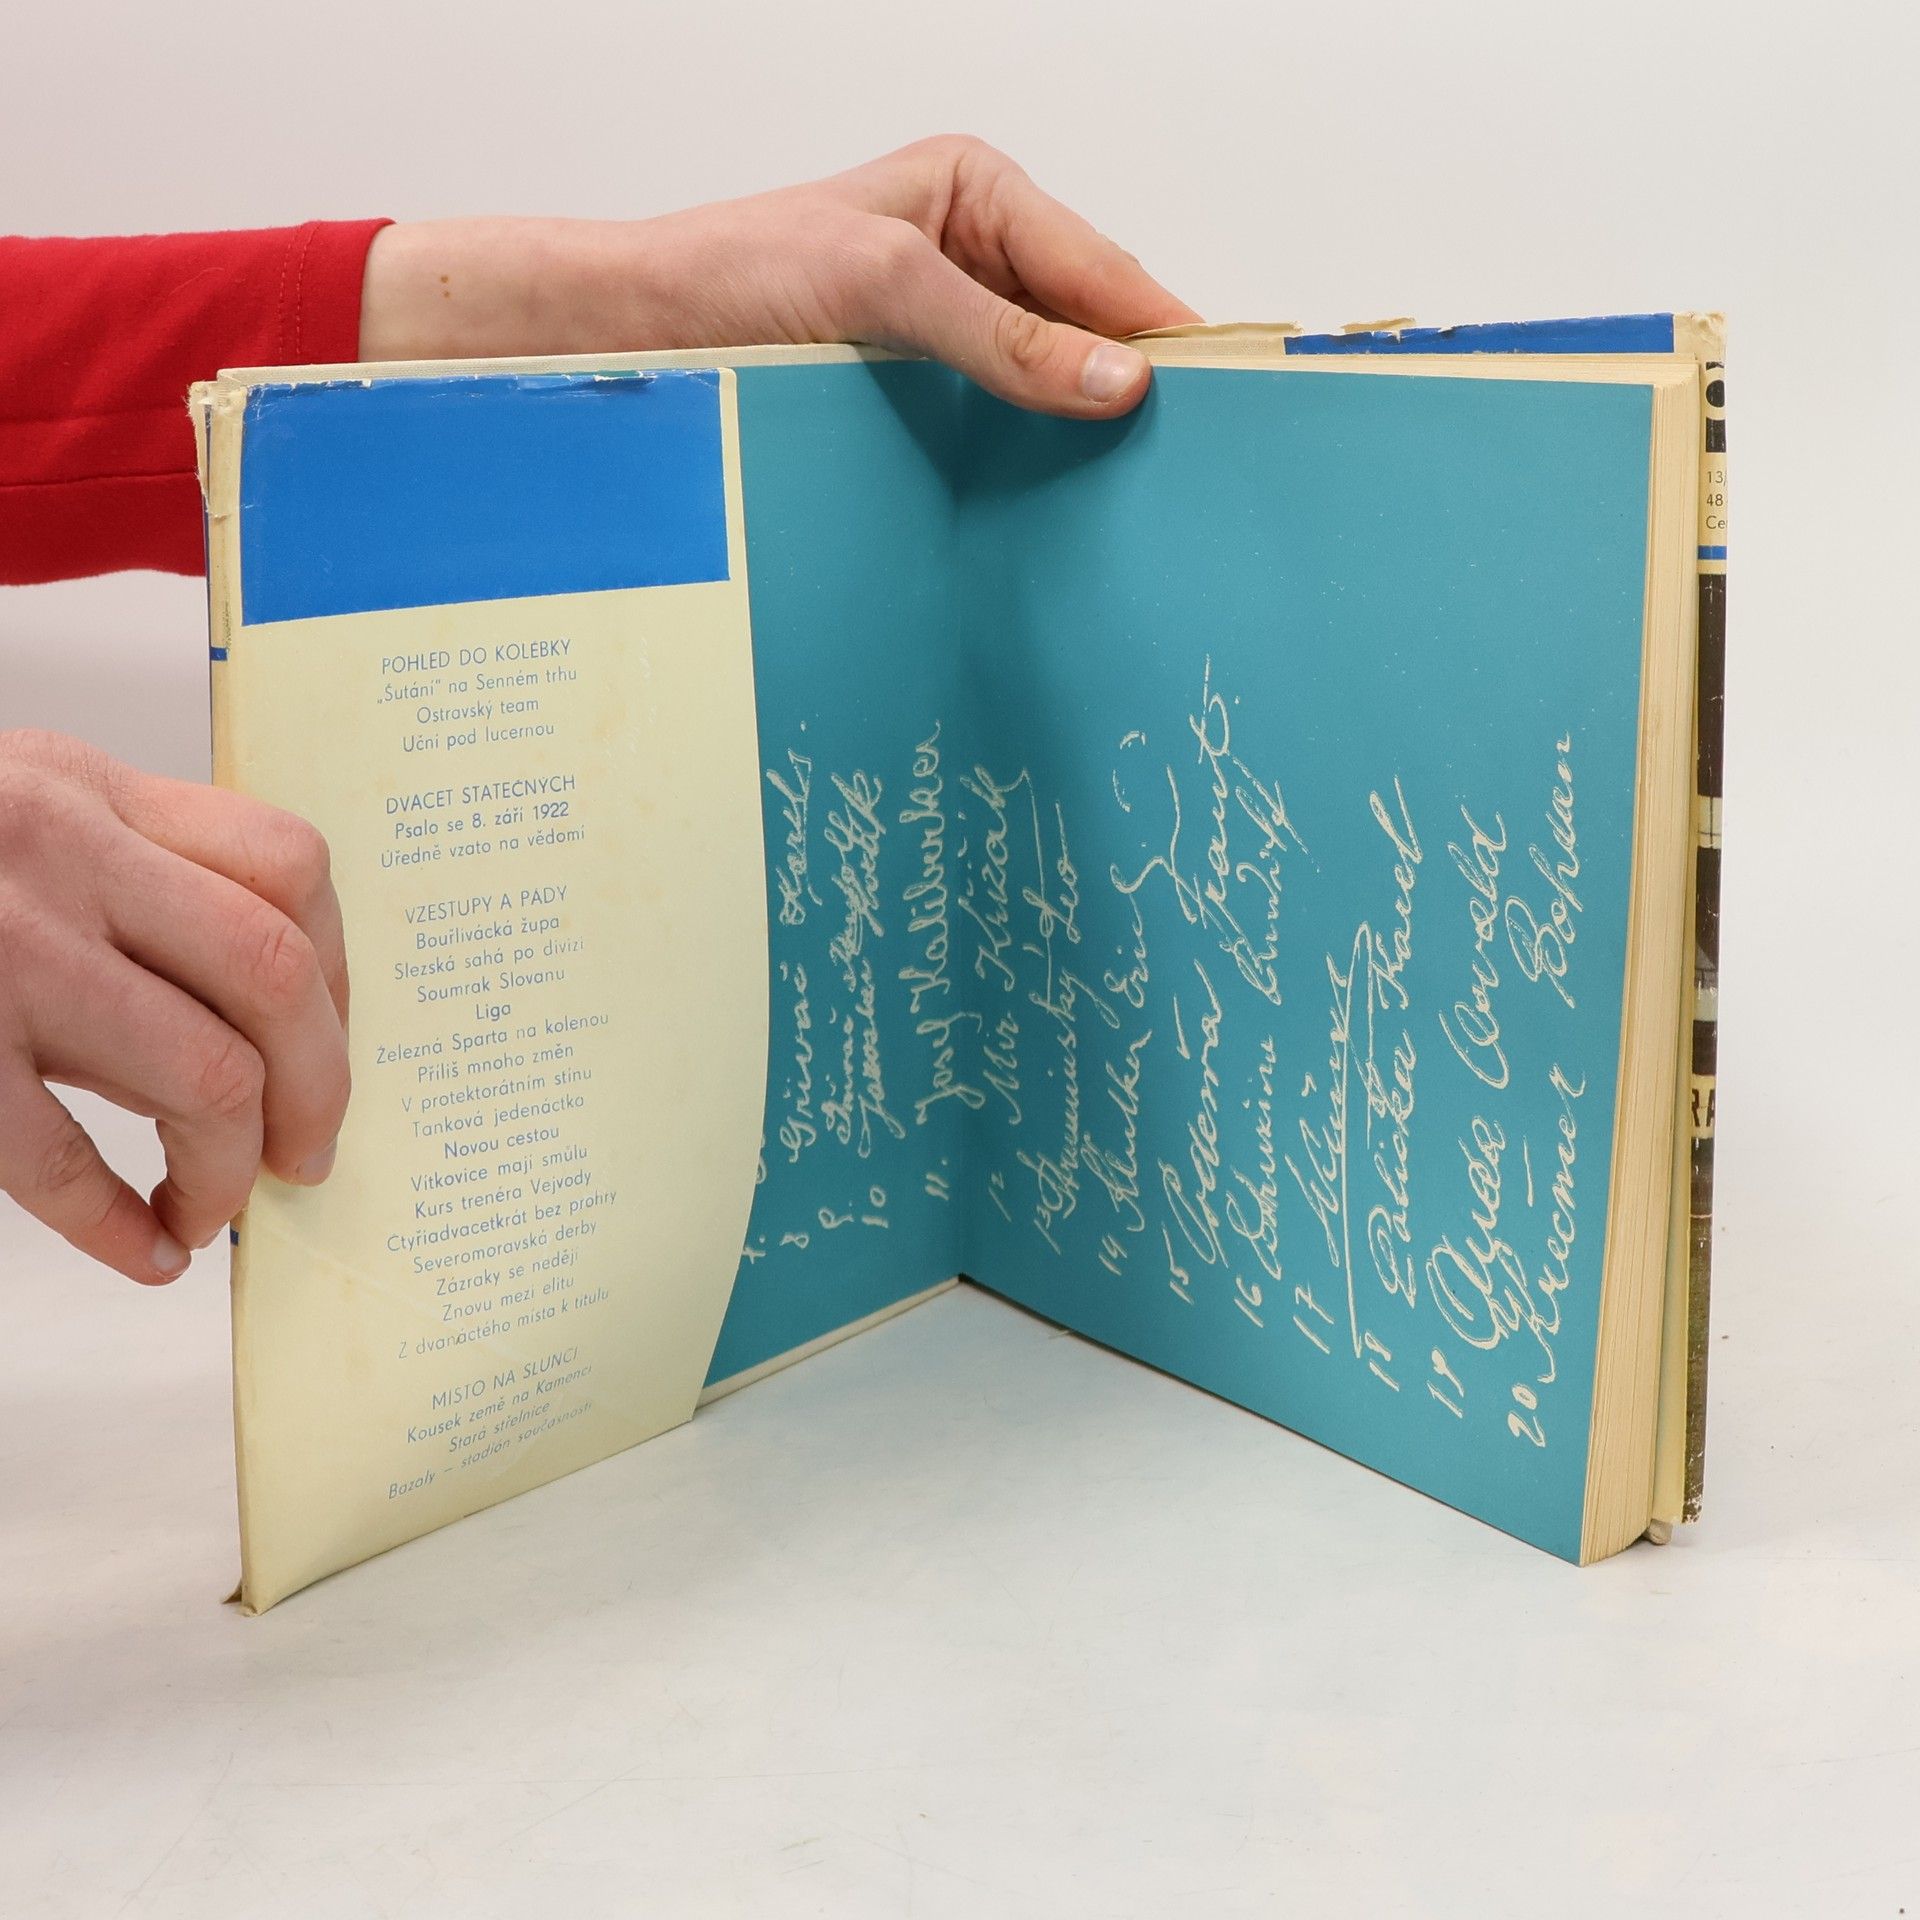 POHLED DO KOLÉBKY
„Šutání“ na Senném trhu
Ostravský team
Učni pod lucernou
DVACET STATEČNÝCH
Psalo se 8. září 1922
Úředně vzato na vědomí
VZESTUPY A PÁDY
Bouřlivácká župa
Slezská sahá po divizi
Soumrak Slovanu
Liga
Železná Sparta na kolenou
Příliš mnoho změn
V protektorátním stínu
Tanková jedenáctka
Novou cestou
Vítkovice mají smůlu
Kurs trenéra Vejvody
Čtyřiadvacetkrát bez prohry
Severomoravská derby
Zázraky se nedějí
Znovu mezi elitu
Z dvanáctého místa k titulu
MÍSTO NA SLUNCI
Kousek země na Kamenci
Stará střelnice
Bazaly – stadión současnosti
7.
8
9.
10 Jaroslav
11. Josef Kaliverker
12 Mir Křižák
13 Leo
14 Eric
15 Podešva Frant.
16
17
18 Karel
19
20 Krečmer Bohdan
13/
48
Ce
RA